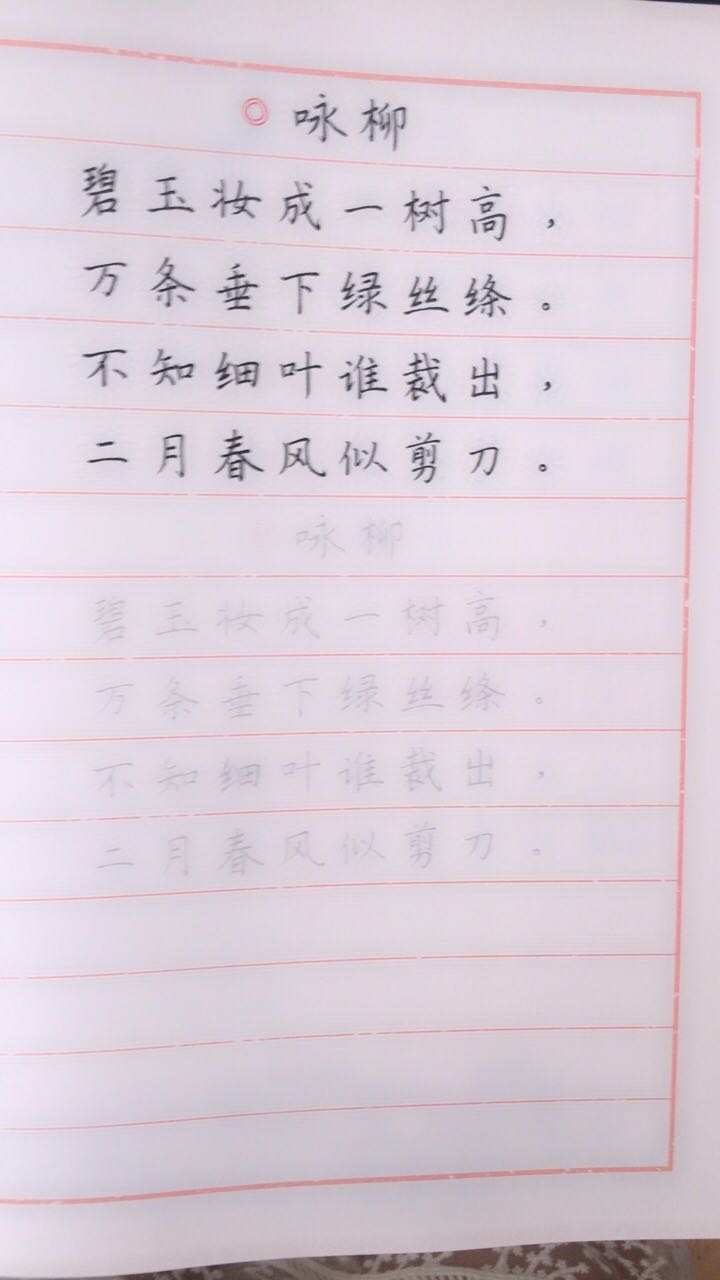 咏柳
碧玉妆成一树高，
万条垂下绿丝绦。
不知细叶谁裁出，
二月春风似剪刀。
咏柳
碧玉妆成一树高，
万条垂下绿丝绦。
不知细叶谁裁出，
二月春风似剪刀。